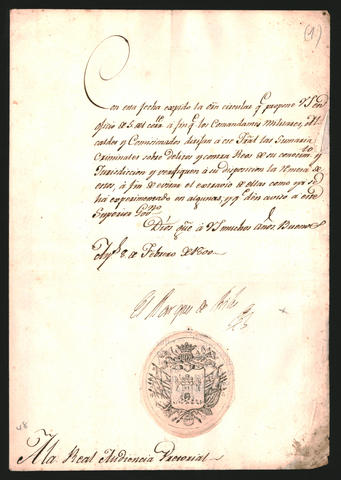 (1)
Con esta fecha expido la Orn circular qe propone VS en
oficio de 5 del corrte a fin qe los Comandantes Militares, Al
caldes y Comisionados dirijan a ese Tral las Sumarias
Criminales sobre Delitos y contra Reos de su conocimto y
Jurisdiccion y verifiquen à su disposicion la Remesa de
estos, à fin de evitar el extravio de ellas como ya se
há experimentado en algunas, y qe den aviso a este
Superior Gobno
Dios gue à VS muchos años. Buenos
Ays 8 de Febrero de 1800
El Marques de Aviles
A la Real Audiencia Pretorial